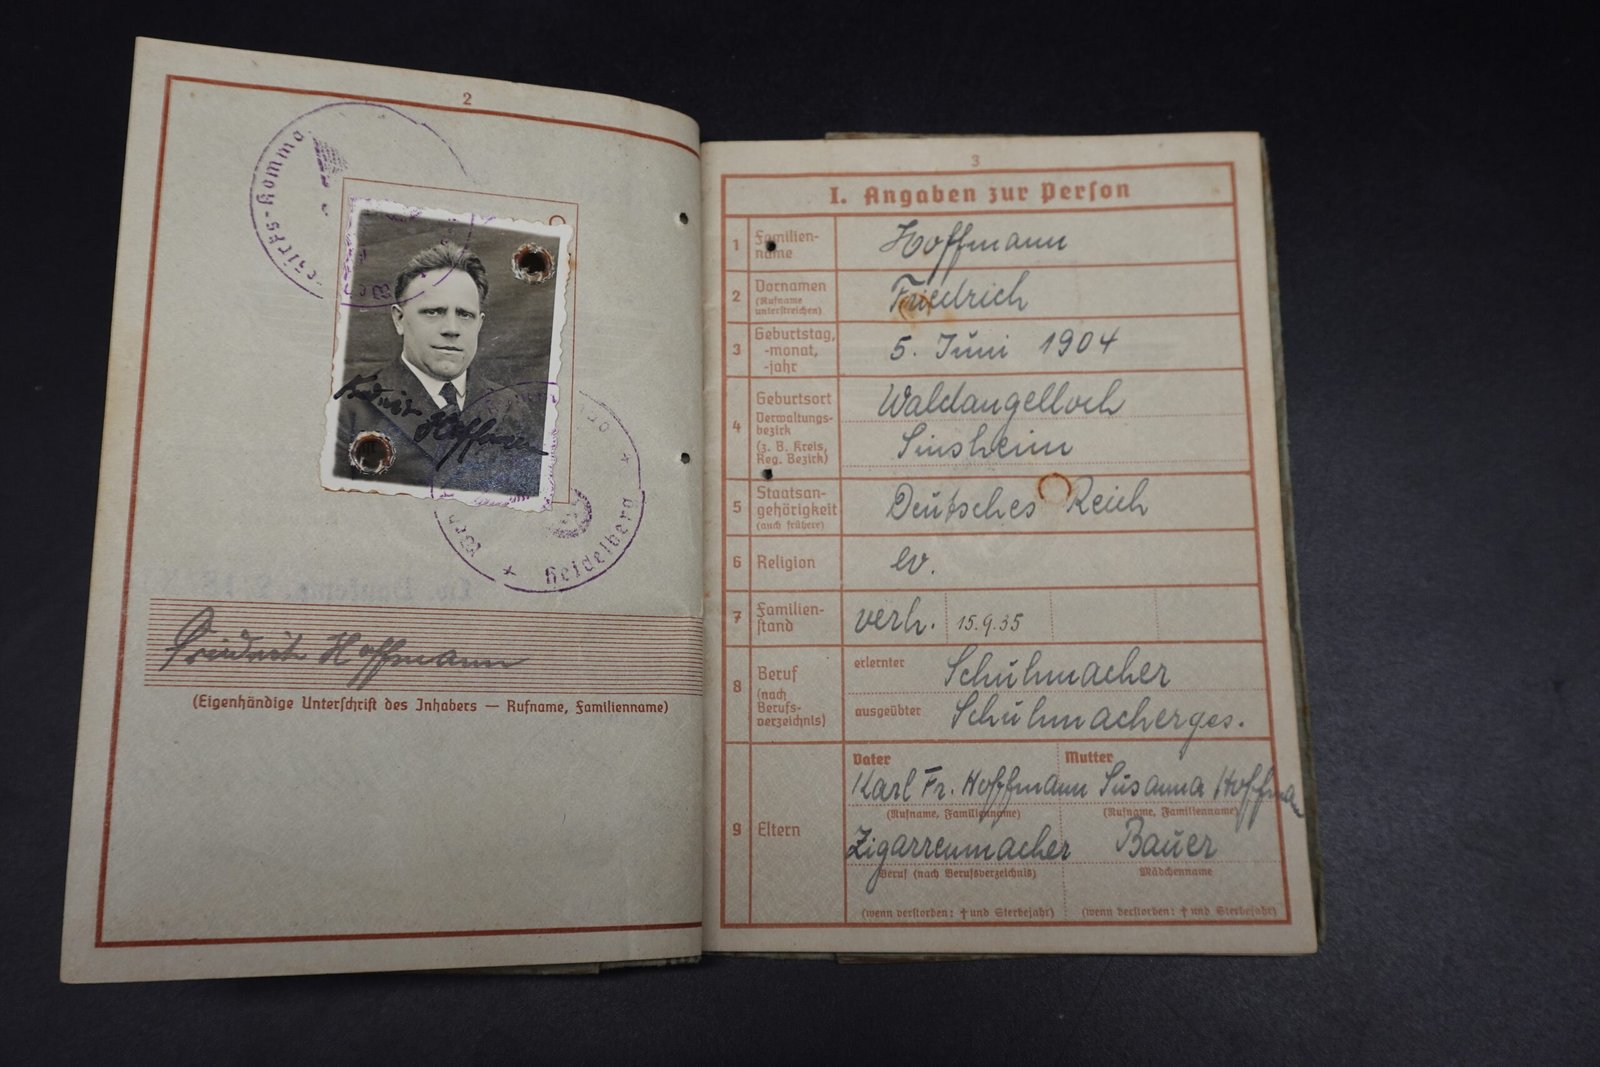 2
Heidelberg
Friedrich Hoffmann
Friedrich Hoffmann
(Eigenhändige Unterschrift des Inhabers — Rufname, Familienname)
3
I. Angaben zur Person
1 Familien-
name
Hoffmann
2 Vornamen
(Rufname
unterstreichen)
Friedrich
3 Geburtstag,
-monat,
-jahr
5. Juni 1904
4 Geburtsort
Verwaltungs-
bezirk
(z. B. Kreis,
Reg. Bezirk)
Waldangelloch
Sinsheim
5 Staatsan-
gehörigkeit
(auch frühere)
Deutsches Reich
6 Religion
ev.
7 Familien-
stand
verh. 15.9.35
8 Beruf
(nach
Berufs-
verzeichnis)
erlernter Schuhmacher
ausgeübter Schuhmacherges.
9 Eltern
Vater Mutter
Karl Fr. Hoffmann Susanna Hoffman
(Rufname, Familienname) (Rufname, Familienname)
Zigarrenmacher Bauer
Beruf (nach Berufsverzeichnis) Mädchenname
(wenn verstorben: † und Sterbejahr) (wenn verstorben: † und Sterbejahr)